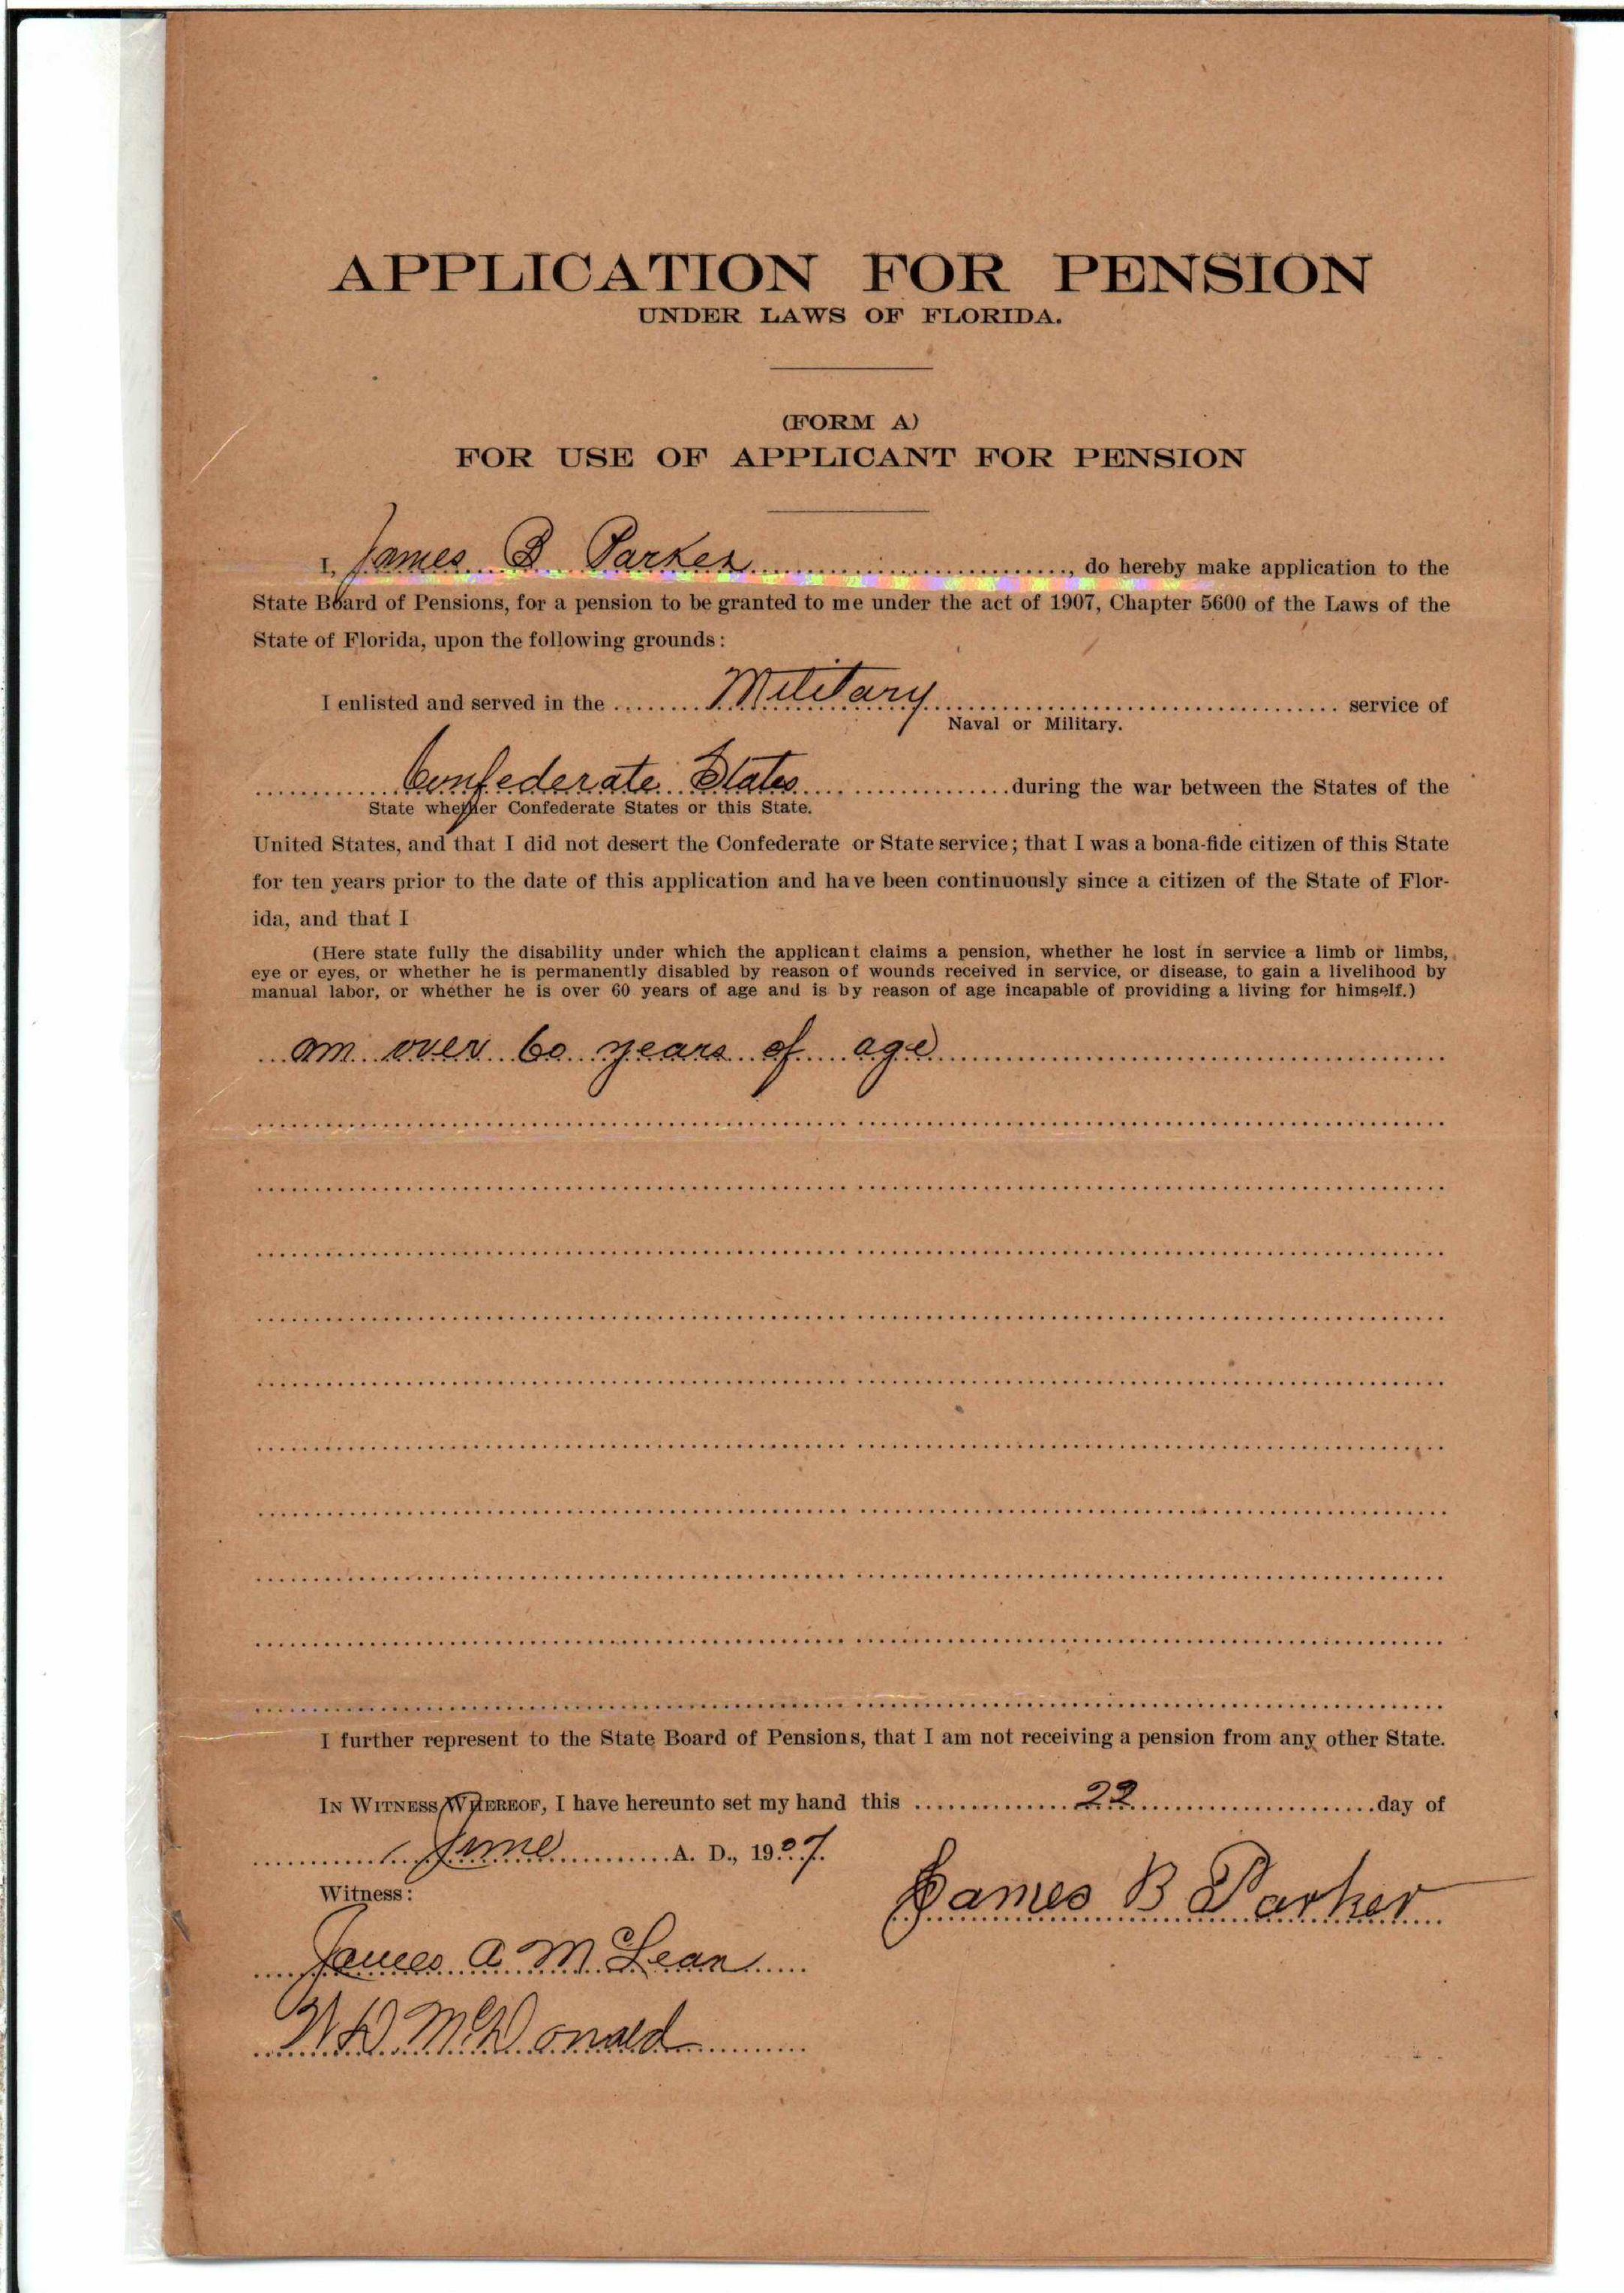 APPLICATION FOR PENSION
UNDER LAWS OF FLORIDA.
(FORM A)
FOR USE OF APPLICANT FOR PENSION
I, James B Parker, do hereby make application to the
State Board of Pensions, for a pension to be granted to me under the act of 1907, Chapter 5600 of the Laws of the
State of Florida, upon the following grounds:
I enlisted and served in the Military service of
Naval or Military.
Confederate States during the war between the States of the
State whether Confederate States or this State.
United States, and that I did not desert the Confederate or State service; that I was a bona-fide citizen of this State
for ten years prior to the date of this application and have been continuously since a citizen of the State of Flor-
ida, and that I
(Here state fully the disability under which the applicant claims a pension, whether he lost in service a limb or limbs,
eye or eyes, or whether he is permanently disabled by reason of wounds received in service, or disease, to gain a livelihood by
manual labor, or whether he is over 60 years of age and is by reason of age incapable of providing a living for himself.)
am over 60 years of age
I further represent to the State Board of Pensions, that I am not receiving a pension from any other State.
IN WITNESS WHEREOF, I have hereunto set my hand this 22 day of
June A. D., 1907.
Witness:
James B Parker
James A McLean
W D McDonald